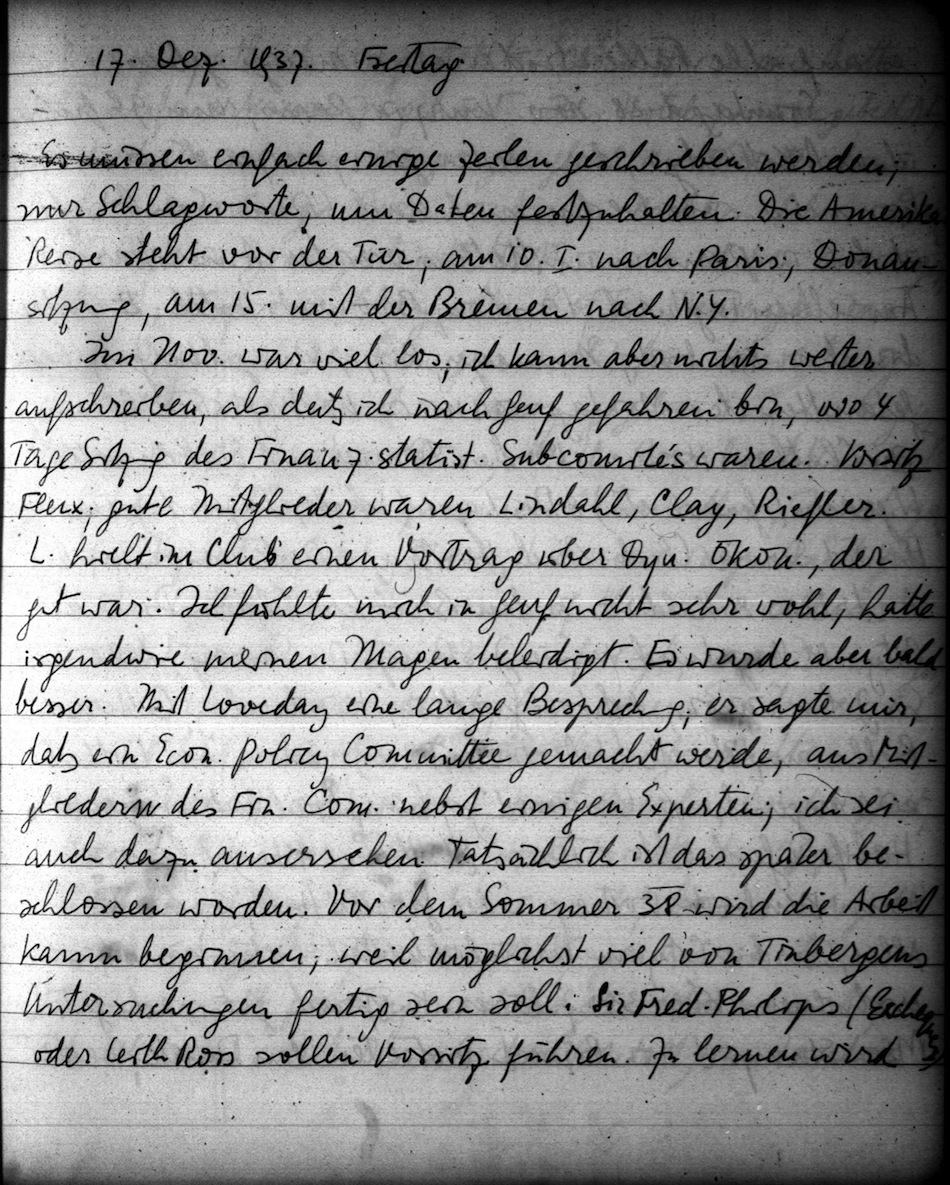 17. Dez. 1937. Freitag
Es müssen einfach einige Zeilen geschrieben werden,
nur Schlagworte, um Daten festzuhalten. Die Amerika
Reise steht vor der Tür, am 10. I. nach Paris, Donau-
sitzung, am 15. mit der Bremen nach N.Y.
Im Nov. war viel los, ich kann aber nichts weiter
aufschreiben, als daß ich nach Genf gefahren bin, wo 4
Tage Sitzg des Finanz. statist. Subcomités waren. Vorsitz
Flux; gute Mitglieder waren Lindahl, Clay, Riefler.
L. hielt im Club einen Vortrag über Dyn. Ökon., der
gut war. Ich fühlte mich in Genf nicht sehr wohl, hatte
irgendwie meinen Magen beleidigt. Es wurde aber bald
besser. Mit Loveday eine lange Besprechg, er sagte mir,
daß ein Econ. Policy Committee gemacht werde, aus Mit-
gliedern des Fin. Com. nebst einigen Experten; ich sei
auch dazu ausersehen. Tatsächlich ist das später be-
schlossen worden. Vor dem Sommer 38 wird die Arbeit
kaum beginnen, weil möglichst viel von Tinbergens
Untersuchungen fertig sein soll. Sir Fred. Philips (Excheq
oder Leith Ross sollen Vorsitz führen. Zu lernen wird